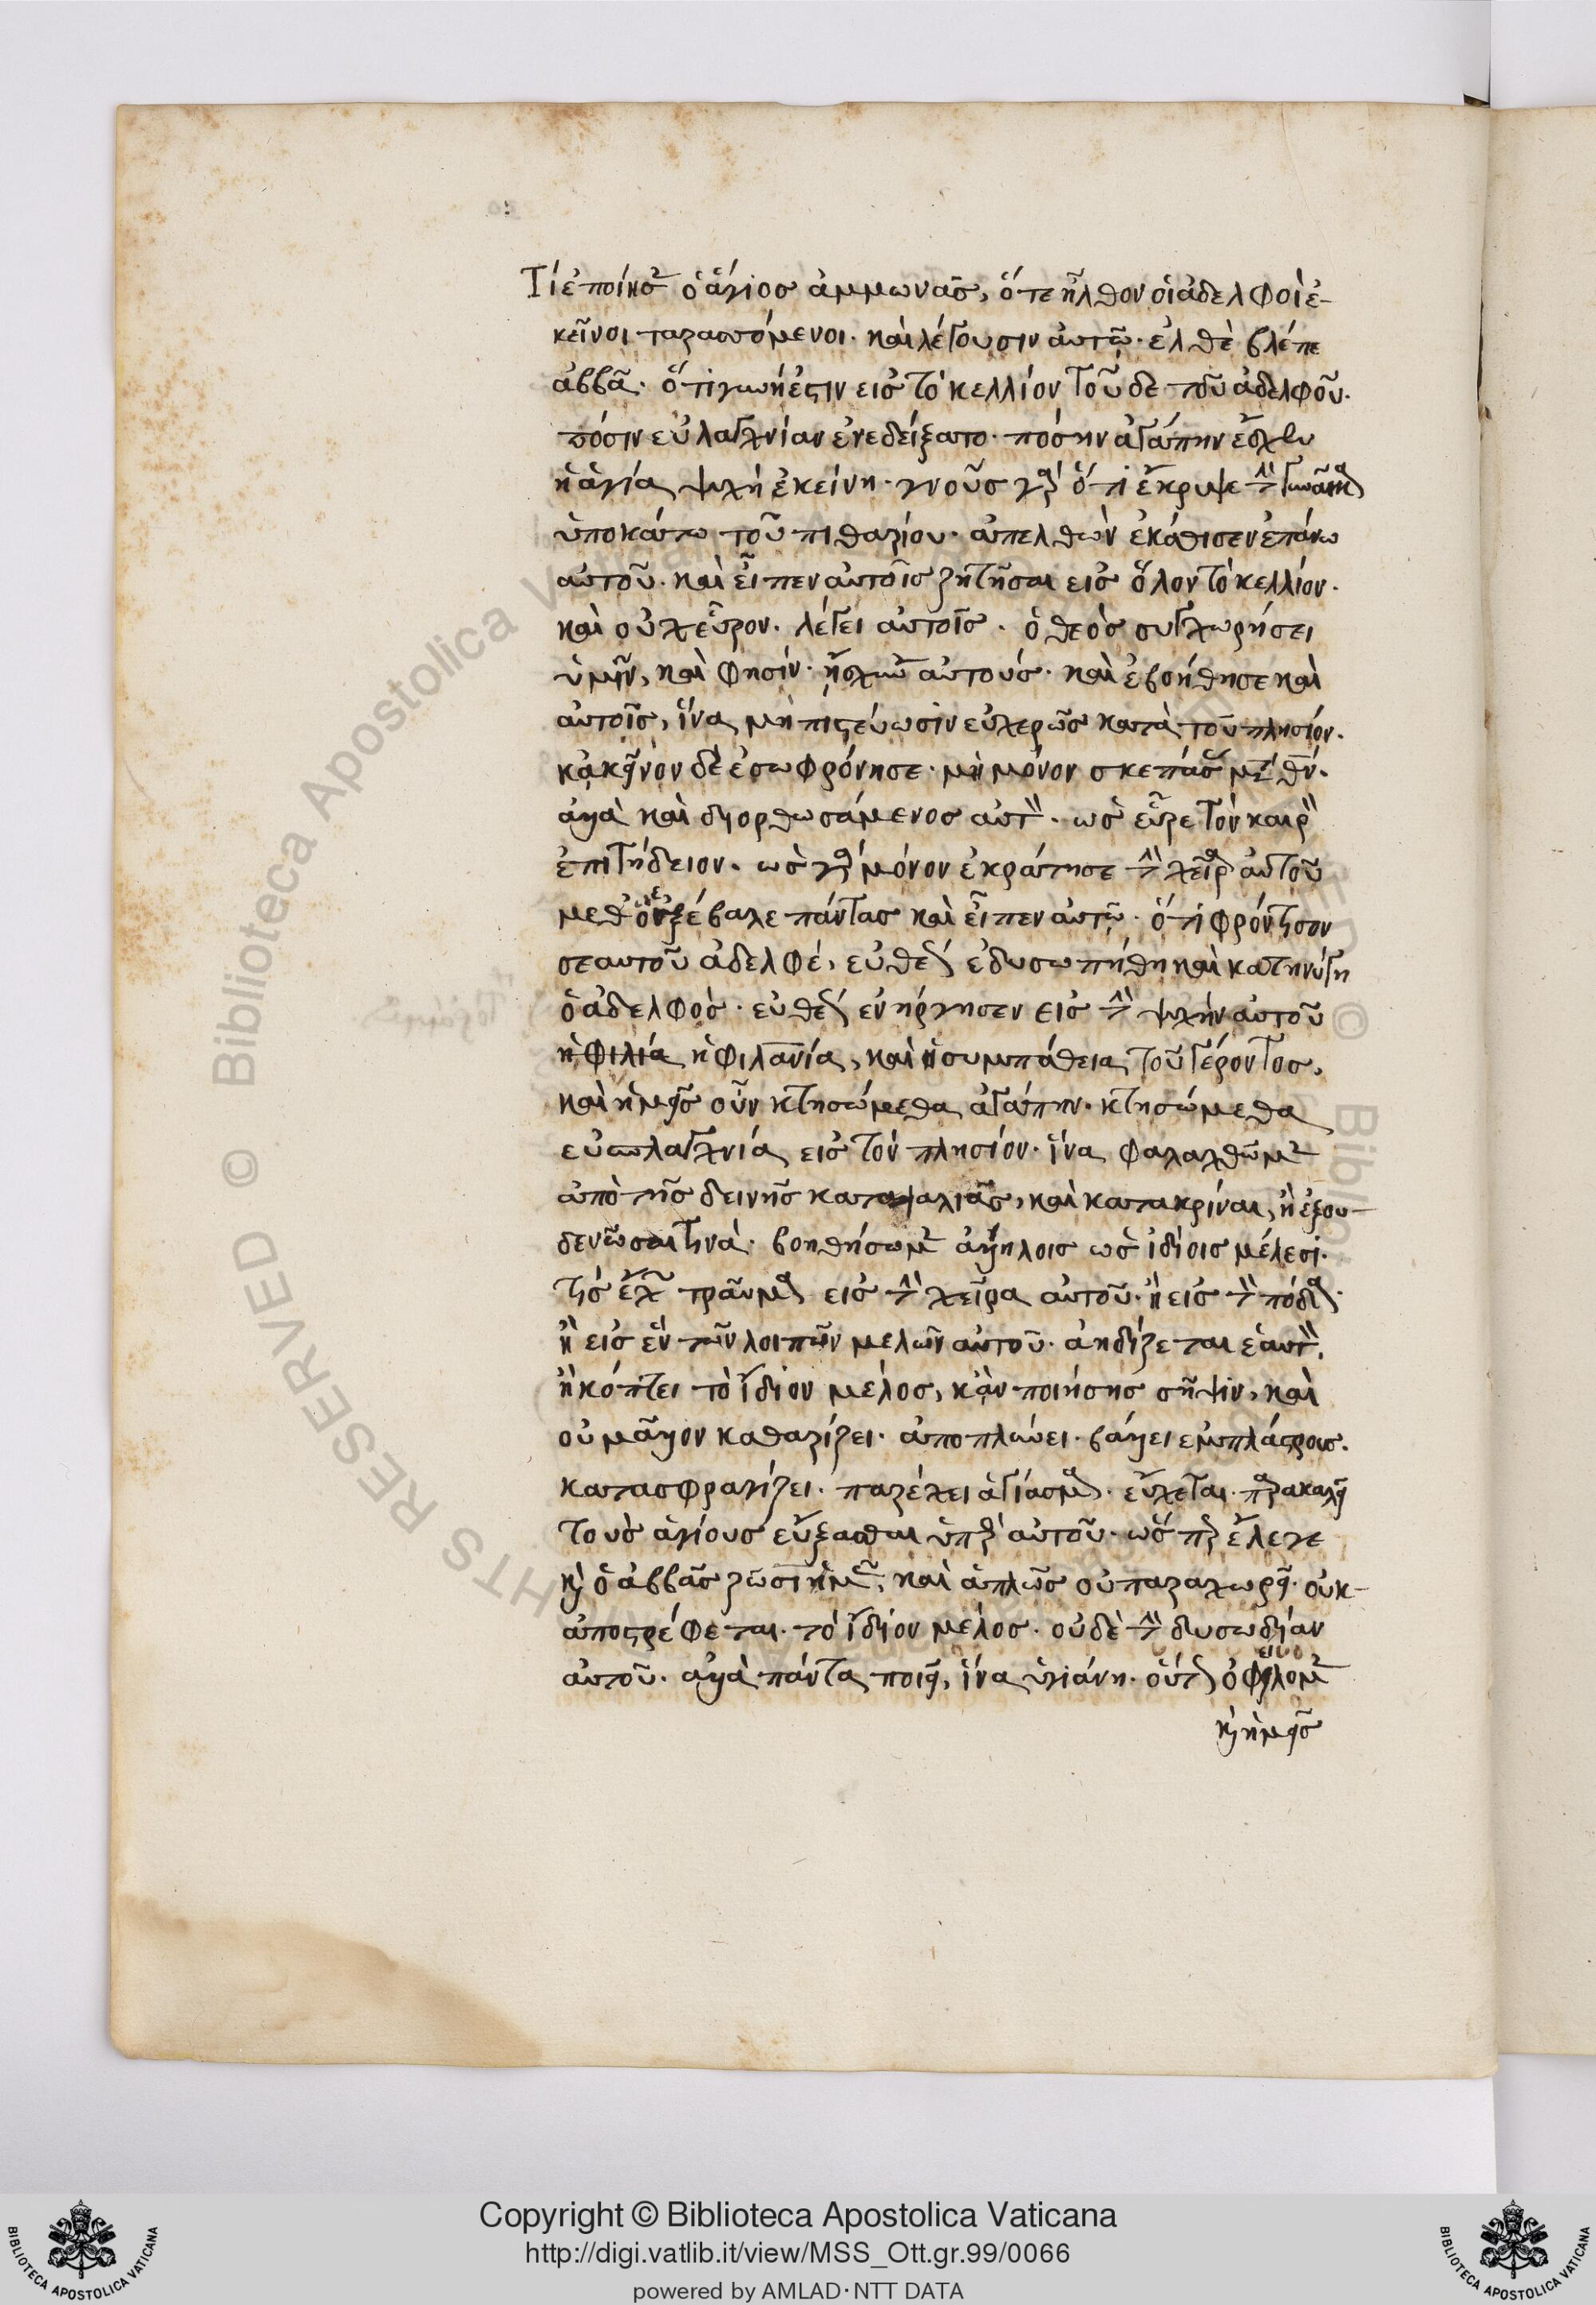 Τί ἐποίησεν ὁ ἅγιος ἀμμωνᾶς, ὅτε ἦλθον οἱ ἀδελφοὶ ἐ-
κεῖνοι ταρασσόμενοι. καὶ λέγουσιν αὐτῷ. ἐλθὲ βλέπε
ἀββᾶ. ὅτι γυνή ἐστιν εἰς τὸ κελλίον τοῦδε τοῦ ἀδελφοῦ.
πόσιν εὐσλαγχνίαν ἐνεδείξατο. πόσην ἀγάπην ἔσχεν
ἡ ἁγία ψυχὴ ἐκείνη. γνοὺς γὰρ ὅτι ἔκρυψε τὴν γυναῖκα
ὑποκάτω τοῦ πιθαρίου. ἀπελθὼν ἐκάθισεν ἐπάνω
αὐτοῦ. καὶ εἶπεν αὐτοῖς ζητῆσαι εἰς ὅλον τὸ κελλίον.
καὶ οὐχ εὗρον. λέγει αὐτοῖς. ὁ θεὸς συγχωρήσει
ὑμῖν, καὶ φησίν. ᾔσχυνεν αὐτούς. καὶ ἐβοήθησε καὶ
αὐτοῖς, ἵνα μὴ πιστεύωσιν εὐχερῶς κατὰ τοῦ πλησίον.
κἀκεῖνον δὲ ἐσωφρόνησε. μὴ μόνον σκεπάσας μετὰ θν.
ἀλλὰ καὶ διορθωσάμενος αὐτὸν. ὡς εὗρε τὸν καιρὸν
ἐπιτήδειον. ὡς γὰρ μόνον ἐκράτησε τὴν χεῖρα αὐτοῦ
μεθ' ὃν ἐξέβαλε πάντας καὶ εἶπεν αὐτῷ. ὅτι φρόντισον
σεαυτοῦ ἀδελφέ, εὐθέως ἐδυσωπήθη καὶ κατηνύγη
ὁ ἀδελφὸς. εὐθέως ἐνήργησεν εἰς τὴν ψυχὴν αὐτοῦ
ἡ φιλία ἡ φιλανία, καὶ ἡ συμπάθεια τοῦ γέροντος.
καὶ ἡμεῖς οὖν κτησώμεθα ἀγάπην. κτησώμεθα
εὐσπλαγχνία εἰς τὸν πλησίον. ἵνα φαλαχθῶμεν
ἀπὸ τῆς δεινῆς καταλαλιᾶς, καὶ κατακρίναι, ἢ ἐξου-
δενῶσαι τινὰ. βοηθήσωμεν ἀλλήλοις ὡς ἰδίοις μέλεσι.
τίς ἔχων τραῦμα εἰς τὴν χεῖρα αὐτοῦ. ἢ εἰς τὸν πόδα.
ἢ εἰς ἓν τῶν λοιπῶν μελῶν αὐτοῦ. ἀηδίζεται ἑαυτὸν,
ἢ κόπτει τὸ ἴδιον μέλος, κἂν ποιήσης σῆψιν, καὶ
οὐ μᾶλλον καθαρίζει. ἀποπλύνει. βάλλει ἐμπλάστροις.
κατασφραγίζει. παρέχει ἁγίασμα. εὔχεται. παρακαλεῖ
τοὺς ἁγίους εὔξασθαι ὑπὲρ αὐτοῦ. ὥσπερ ἔλεγε
καὶ ὁ ἀββᾶς ζωσιμᾶς, καὶ ἁπλῶς οὐ παραχωρεῖ. οὐκ-
ἀποστρέφεται. τὸ ἴδιον μέλος. οὐδὲ τὴν δυσωδίαν
αὐτοῦ. ἀλλὰ πάντα ποιεῖ, ἵνα ὑγιάνη. οὕτως ὀφείλομεν
καὶ ἡμεῖς
Copyright © Biblioteca Apostolica Vaticana
http://digi.vatlib.it/view/MSS_Ott.gr.99/0066
powered by AMLAD·NTT DATA